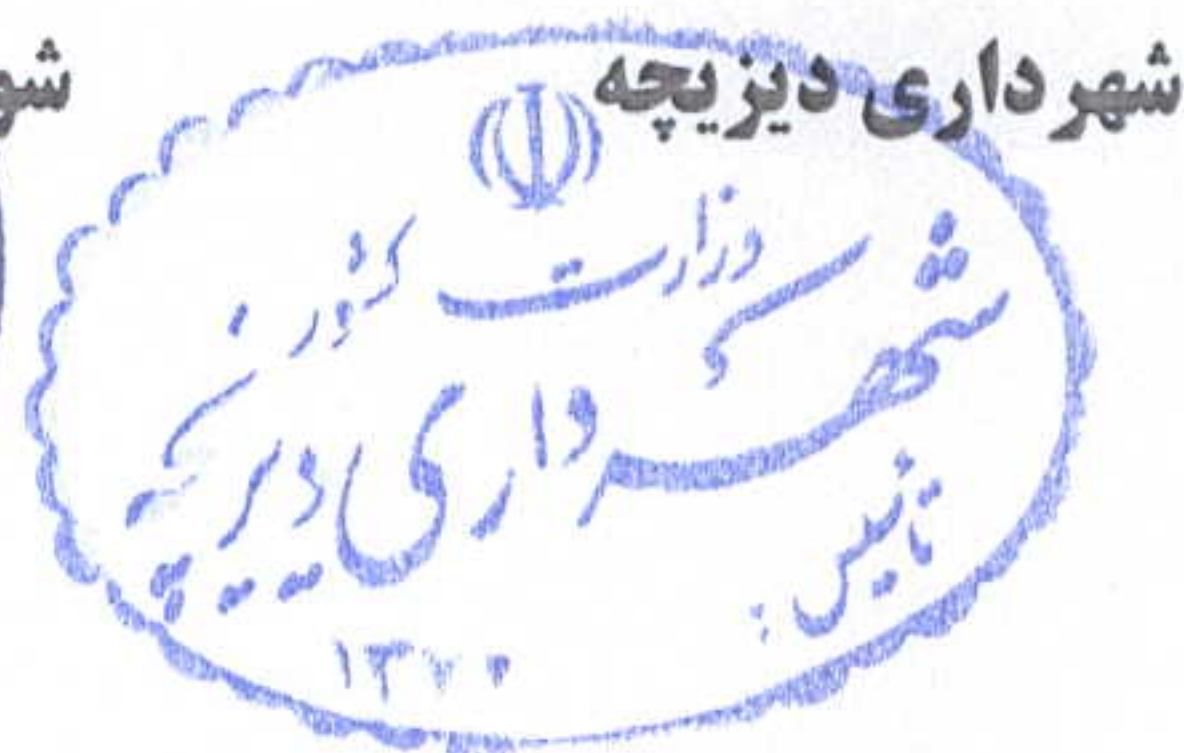 شهرداری دیزیچه
شو
وزارت کشور
شهرداری دیزیچه
تأسیس: